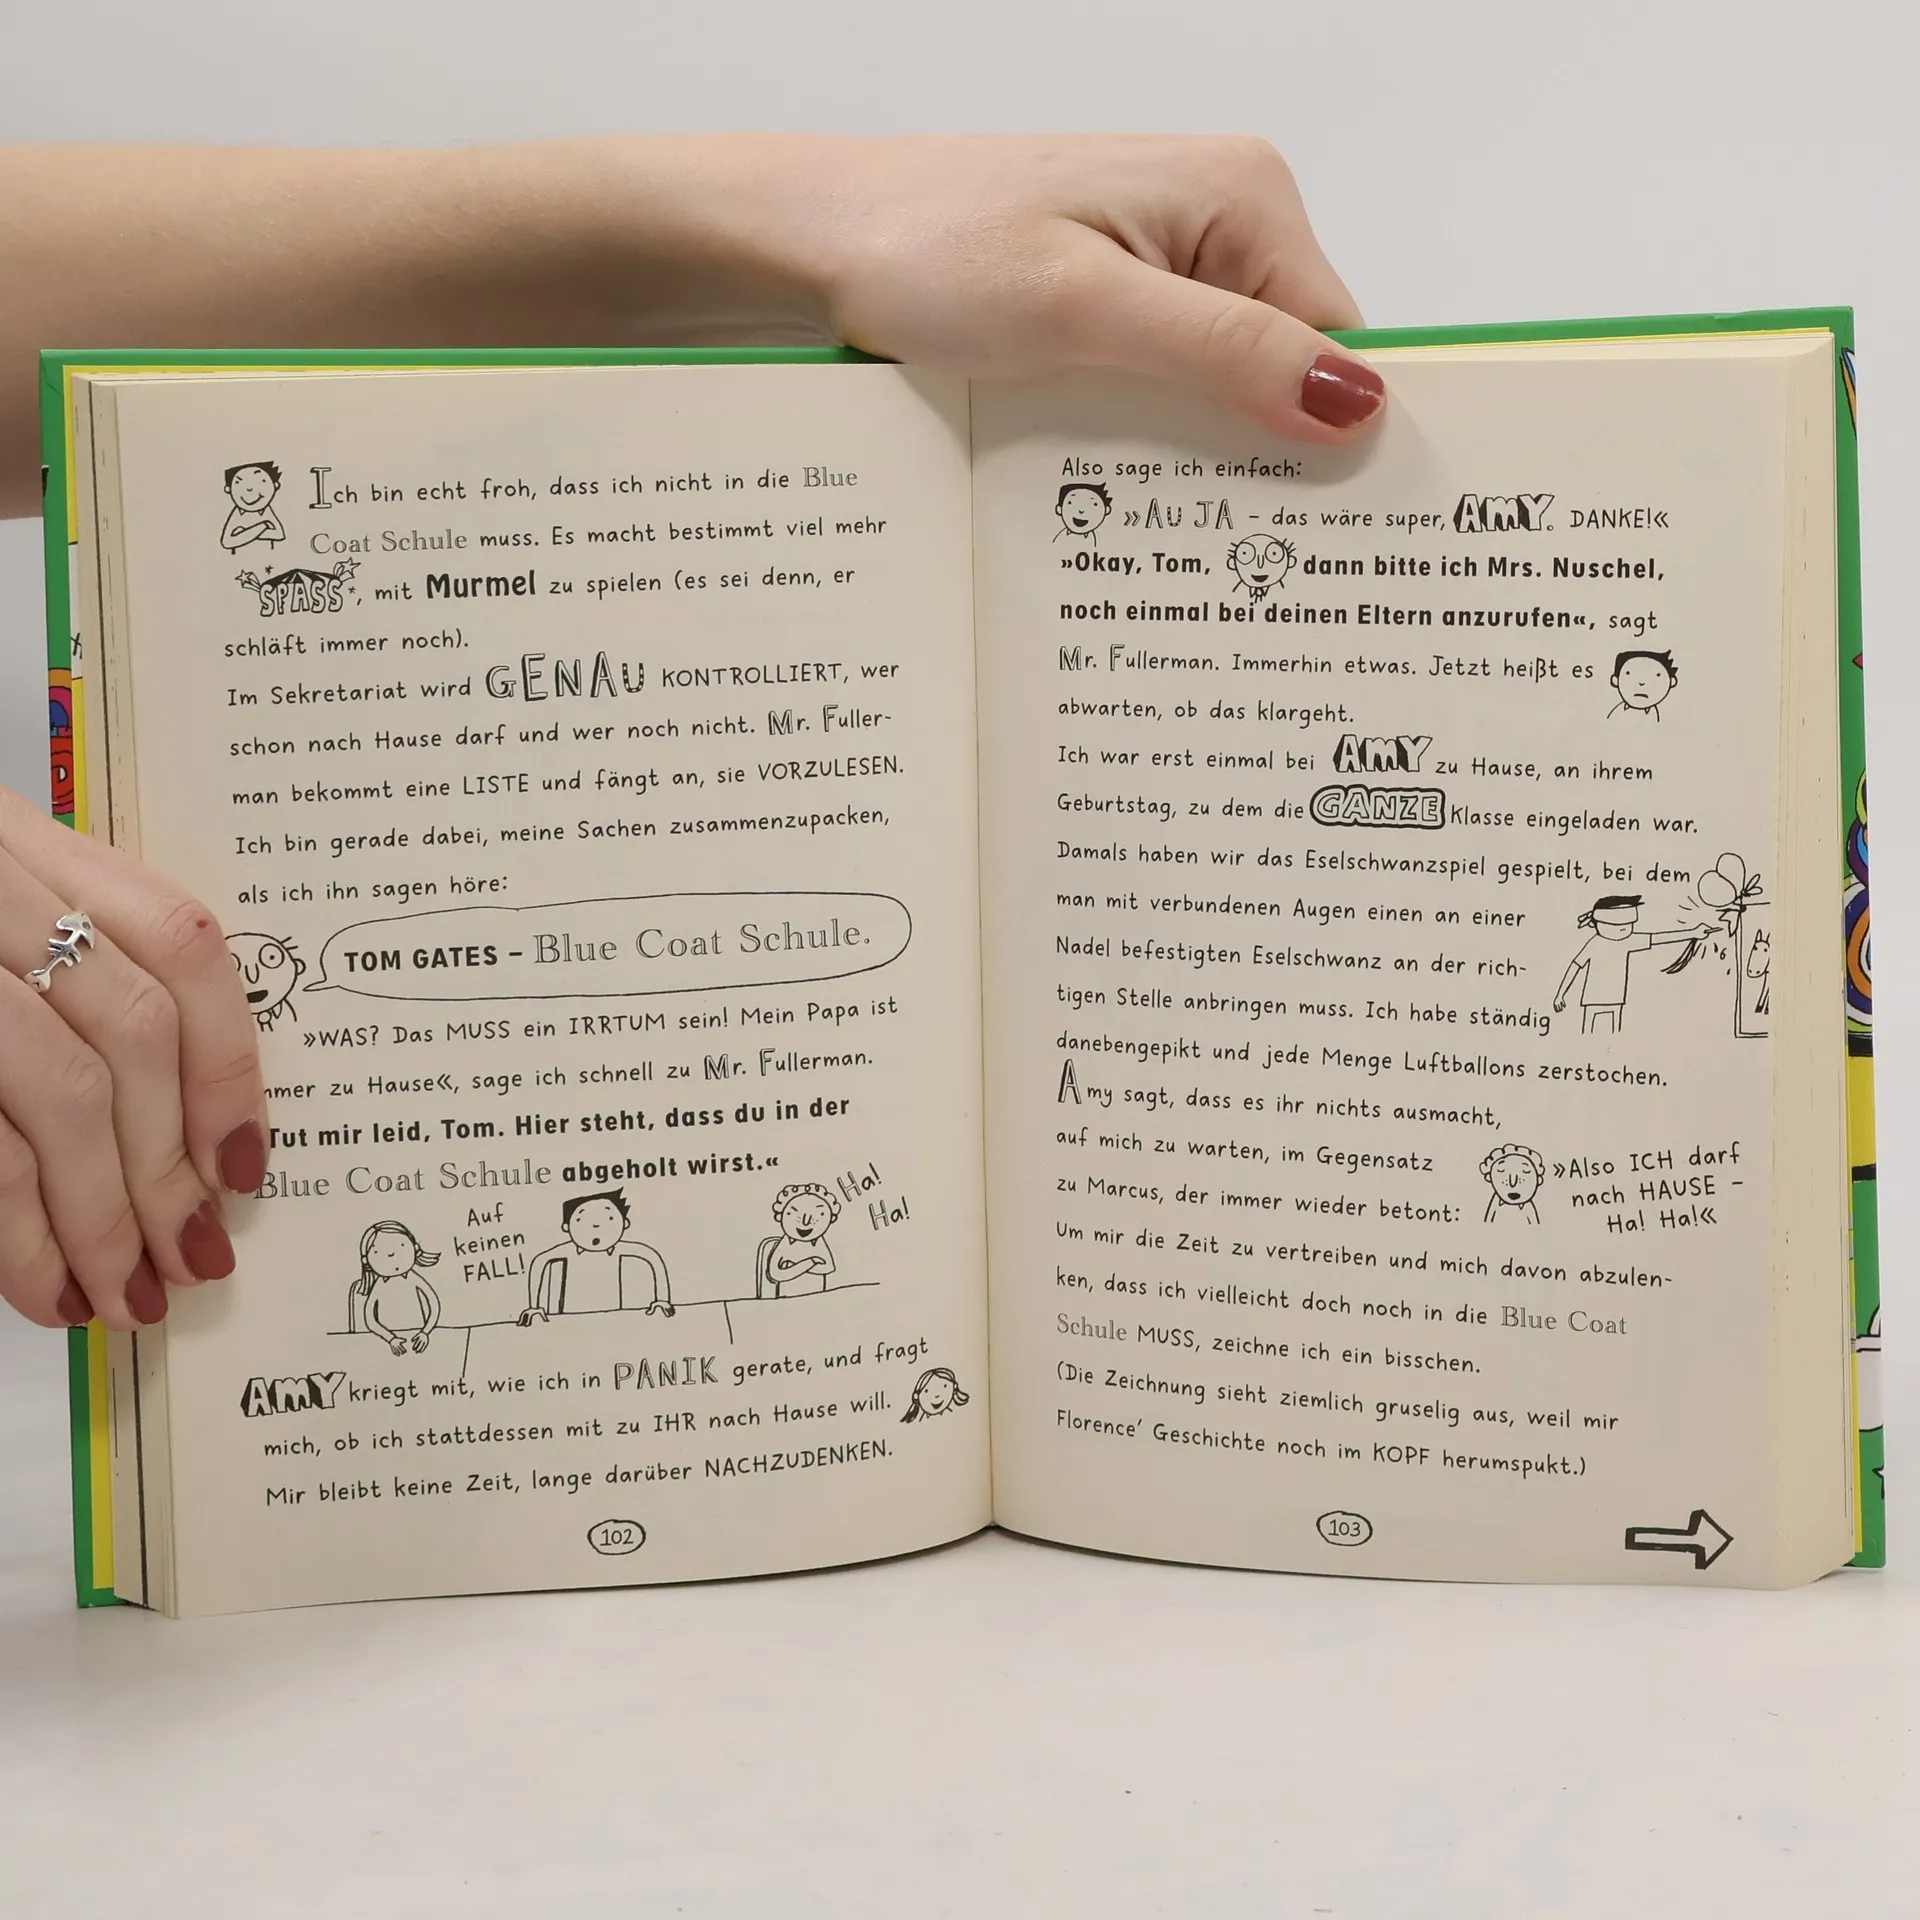 Ich bin echt froh, dass ich nicht in die Blue
Coat Schule muss. Es macht bestimmt viel mehr
SPASS*, mit Murmel zu spielen (es sei denn, er
schläft immer noch).
Im Sekretariat wird GENAU KONTROLLIERT, wer
schon nach Hause darf und wer noch nicht. Mr. Fuller-
man bekommt eine LISTE und fängt an, sie VORZULESEN.
Ich bin gerade dabei, meine Sachen zusammenzupacken,
als ich ihn sagen höre:
TOM GATES – Blue Coat Schule.
»WAS? Das MUSS ein IRRTUM sein! Mein Papa ist
mmer zu Hause«, sage ich schnell zu Mr. Fullerman.
Tut mir leid, Tom. Hier steht, dass du in der
Blue Coat Schule abgeholt wirst.«
Auf
keinen
FALL!
Ha!
Ha!
AMY kriegt mit, wie ich in PANIK gerate, und fragt
mich, ob ich stattdessen mit zu IHR nach Hause will.
Mir bleibt keine Zeit, lange darüber NACHZUDENKEN.
102
Also sage ich einfach:
»AU JA – das wäre super, AMY. DANKE!«
»Okay, Tom, dann bitte ich Mrs. Nuschel,
noch einmal bei deinen Eltern anzurufen«, sagt
Mr. Fullerman. Immerhin etwas. Jetzt heißt es
abwarten, ob das klargeht.
Ich war erst einmal bei AMY zu Hause, an ihrem
Geburtstag, zu dem die GANZE Klasse eingeladen war.
Damals haben wir das Eselschwanzspiel gespielt, bei dem
man mit verbundenen Augen einen an einer
Nadel befestigten Eselschwanz an der rich-
tigen Stelle anbringen muss. Ich habe ständig
danebengepikt und jede Menge Luftballons zerstochen.
Amy sagt, dass es ihr nichts ausmacht,
auf mich zu warten, im Gegensatz
zu Marcus, der immer wieder betont:
»Also ICH darf
nach HAUSE –
Ha! Ha!«
Um mir die Zeit zu vertreiben und mich davon abzulen-
ken, dass ich vielleicht doch noch in die Blue Coat
Schule MUSS, zeichne ich ein bisschen.
(Die Zeichnung sieht ziemlich gruselig aus, weil mir
Florence' Geschichte noch im KOPF herumspukt.)
103